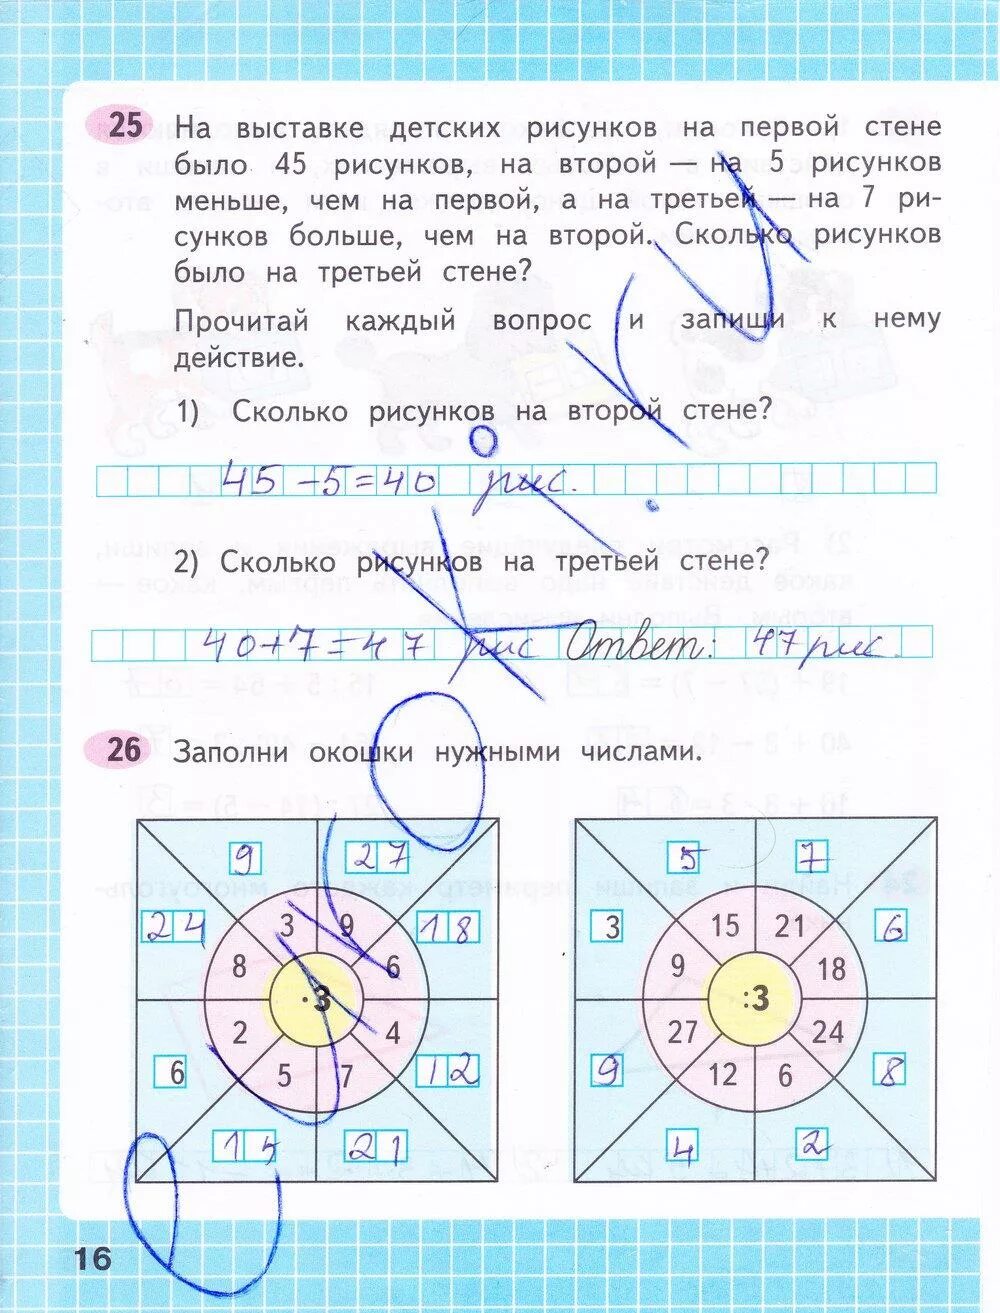 25 На выставке детских рисунков на первой стене
было 45 рисунков, на второй — на 5 рисунков
меньше, чем на первой, а на третьей — на 7 ри-
сунков больше, чем на второй. Сколько рисунков
было на третьей стене?
Прочитай каждый вопрос и запиши к нему
действие.
1) Сколько рисунков на второй стене?
45 - 5 = 40 рис.
2) Сколько рисунков на третьей стене?
40 + 7 = 47 рис Ответ: 47 рис.
26 Заполни окошки нужными числами.
9 27 5 7
24 3 9 18 3 15 21 6
8 6 9 18
·3 :3
2 4 27 24
6 5 7 12 9 12 6 8
15 21 4 2
16